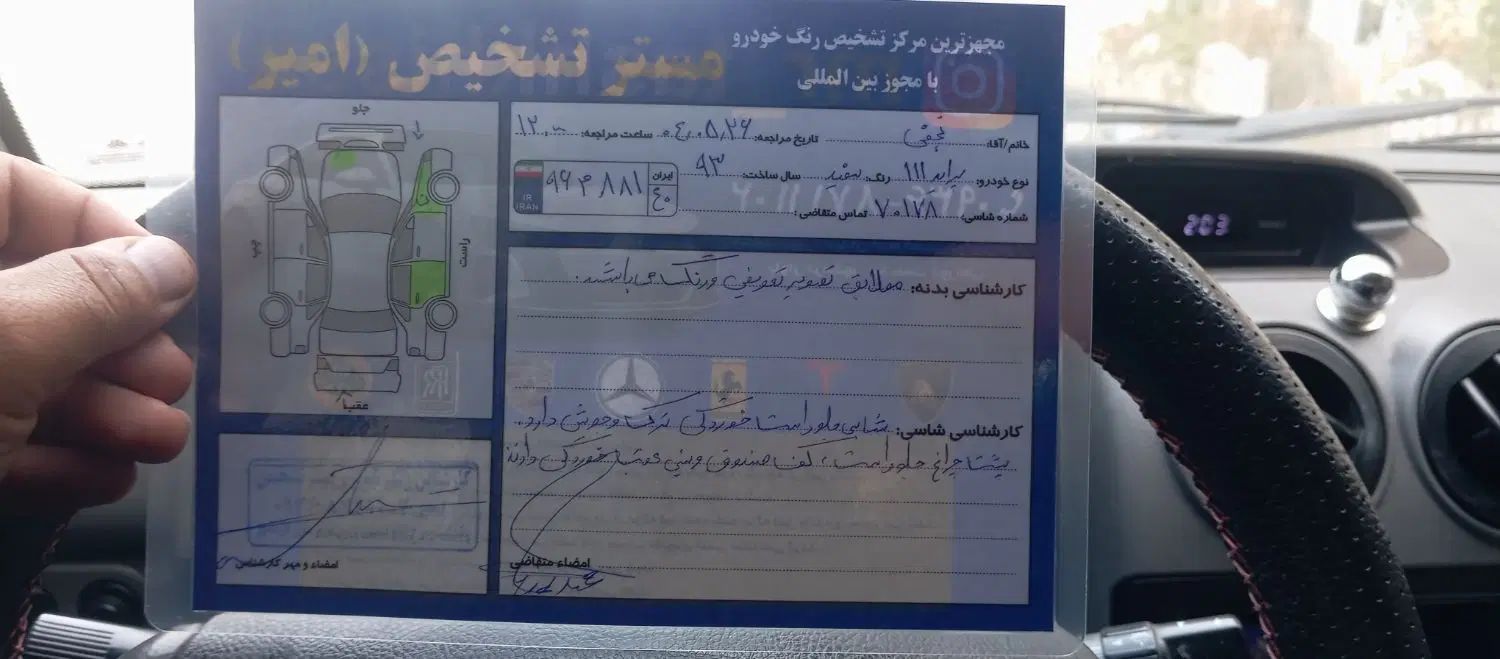 مستر تشخیص (امیر)
مجهزترین مرکز تشخیص رنگ خودرو
با مجوز بین المللی
جلو
چپ
راست
عقب
خانم/آقا: نجفی تاریخ مراجعه: ۰۴,۰۵,۲۶ ساعت مراجعه: ۱۲
نوع خودرو: پراید ۱۱۱ رنگ: سفید سال ساخت: ۹۳
شماره شاسی: ۷۰۱۷۸ تماس متقاضی:
IR
IRAN
۹۶ م ۸۸۱
ایران
۴۰
کارشناسی بدنه: مطابق تصویر تعویض و رنگ می باشد.
کارشناسی شاسی: شاسی جلو راست خوردگی ترک و جوش دارد.
پشت چراغ جلو راست، کف صندوق و سینی عقب خوردگی دارند
امضاء و مهر کارشناس
امضاء متقاضی
203